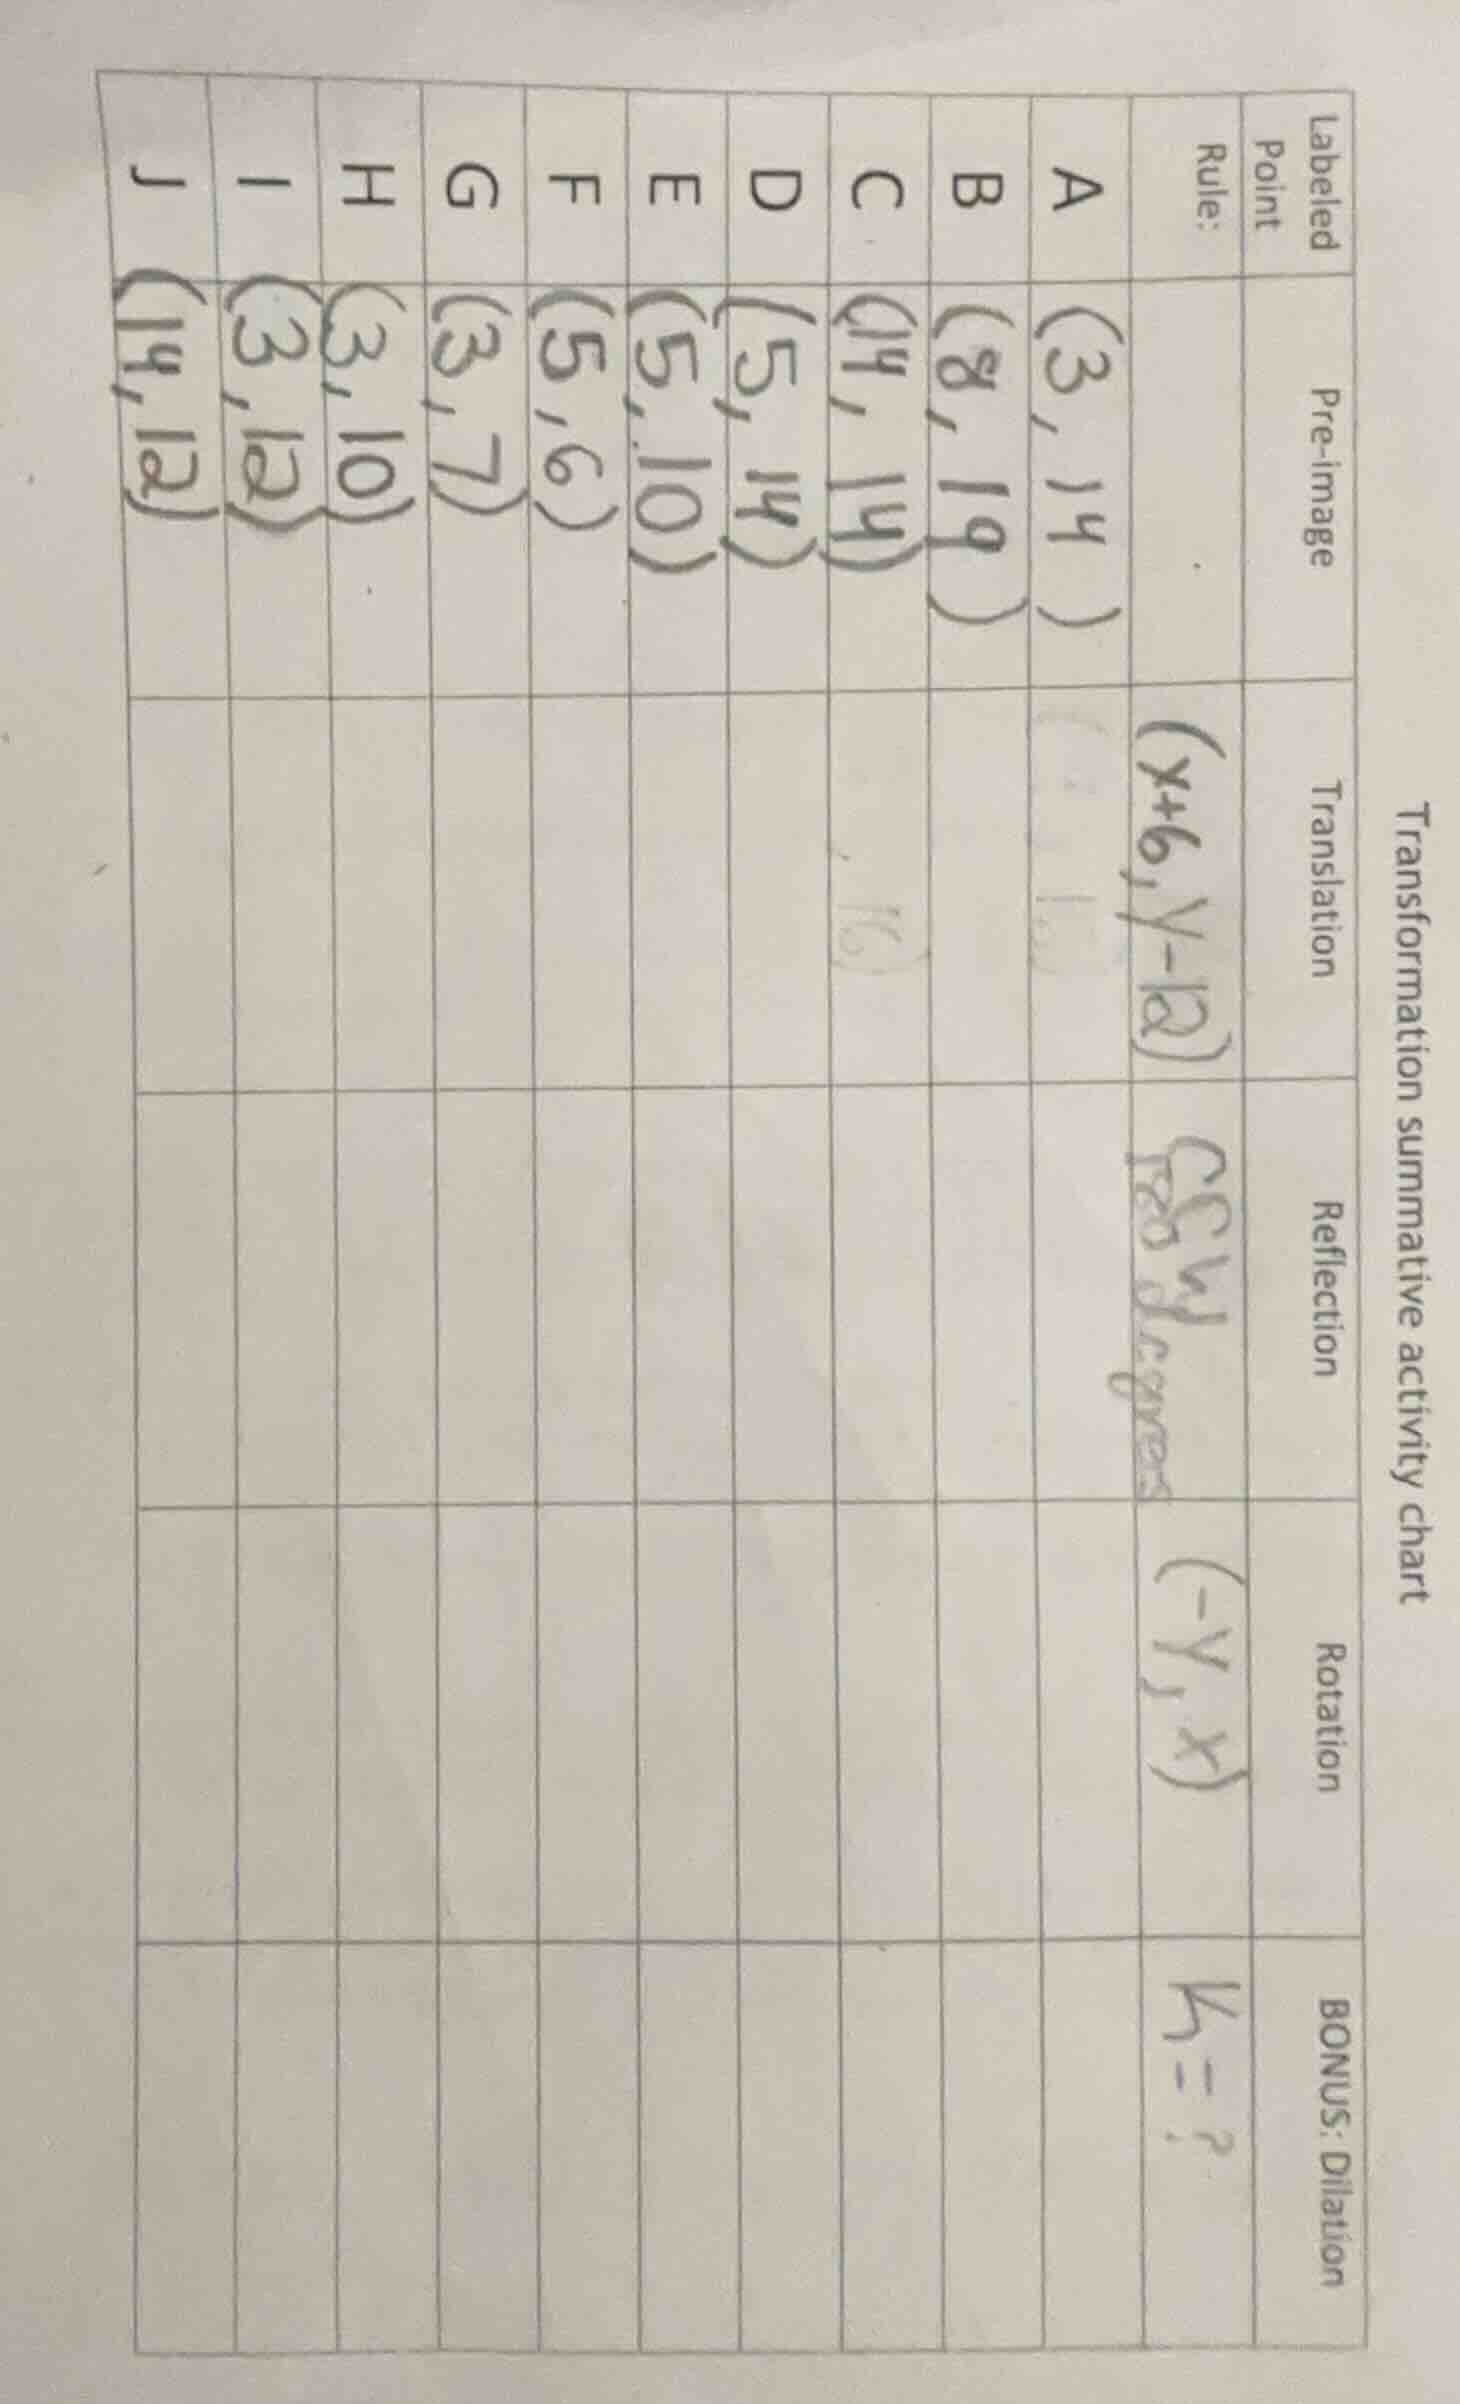 Transformation summative activity chart
Labeled Point Pre-image Translation Reflection Rotation BONUS: Dilation
Rule: (x+6, y-12) CCW degrees (-y, x) K=?
A (3, 14)
B (8, 19)
C (14, 14) , 16)
D (5, 14)
E (5, 10)
F (5, 6)
G (3, 7)
H (3, 10)
I (3, 12)
J (14, 12)